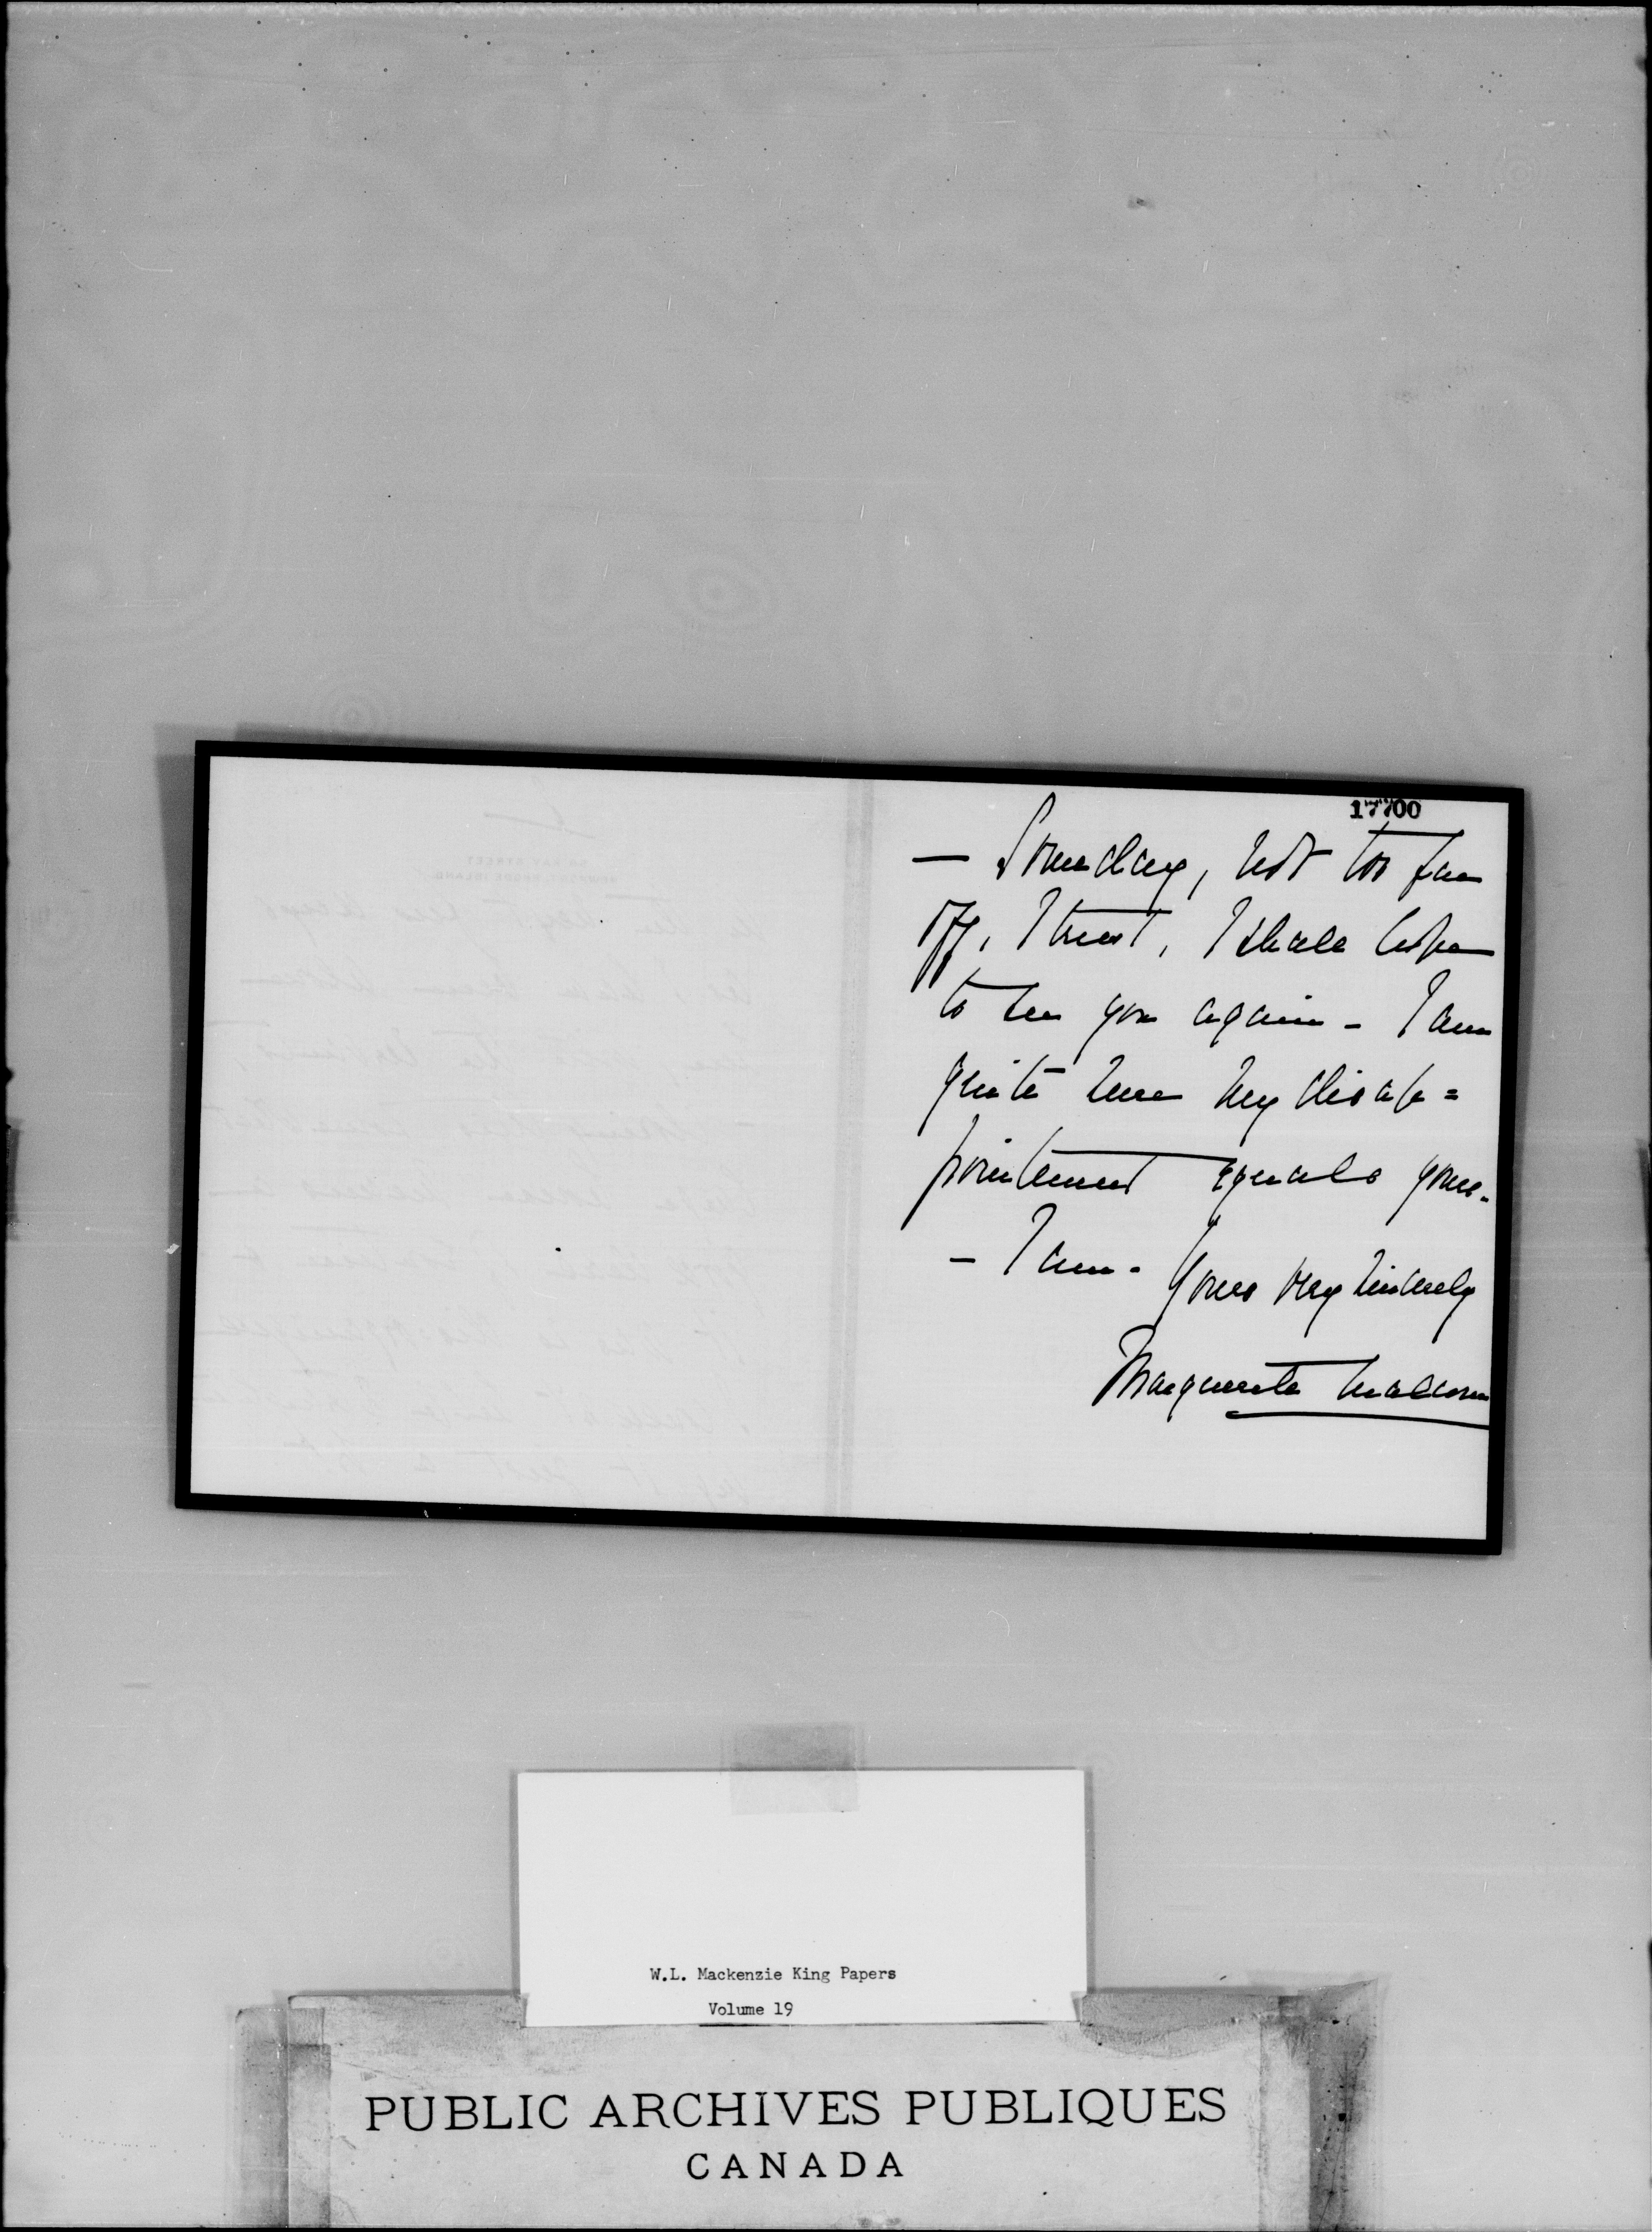 17700
— Someday, not too far
off, I trust, I shall hope
to see you again – I am
quite sure my disap=
pointement equals yours.
– I am.
Yours very sincerely
Marguerite
W.L. Mackenzie King Papers
Volume 19
PUBLIC ARCHIVES PUBLIQUES
CANADA